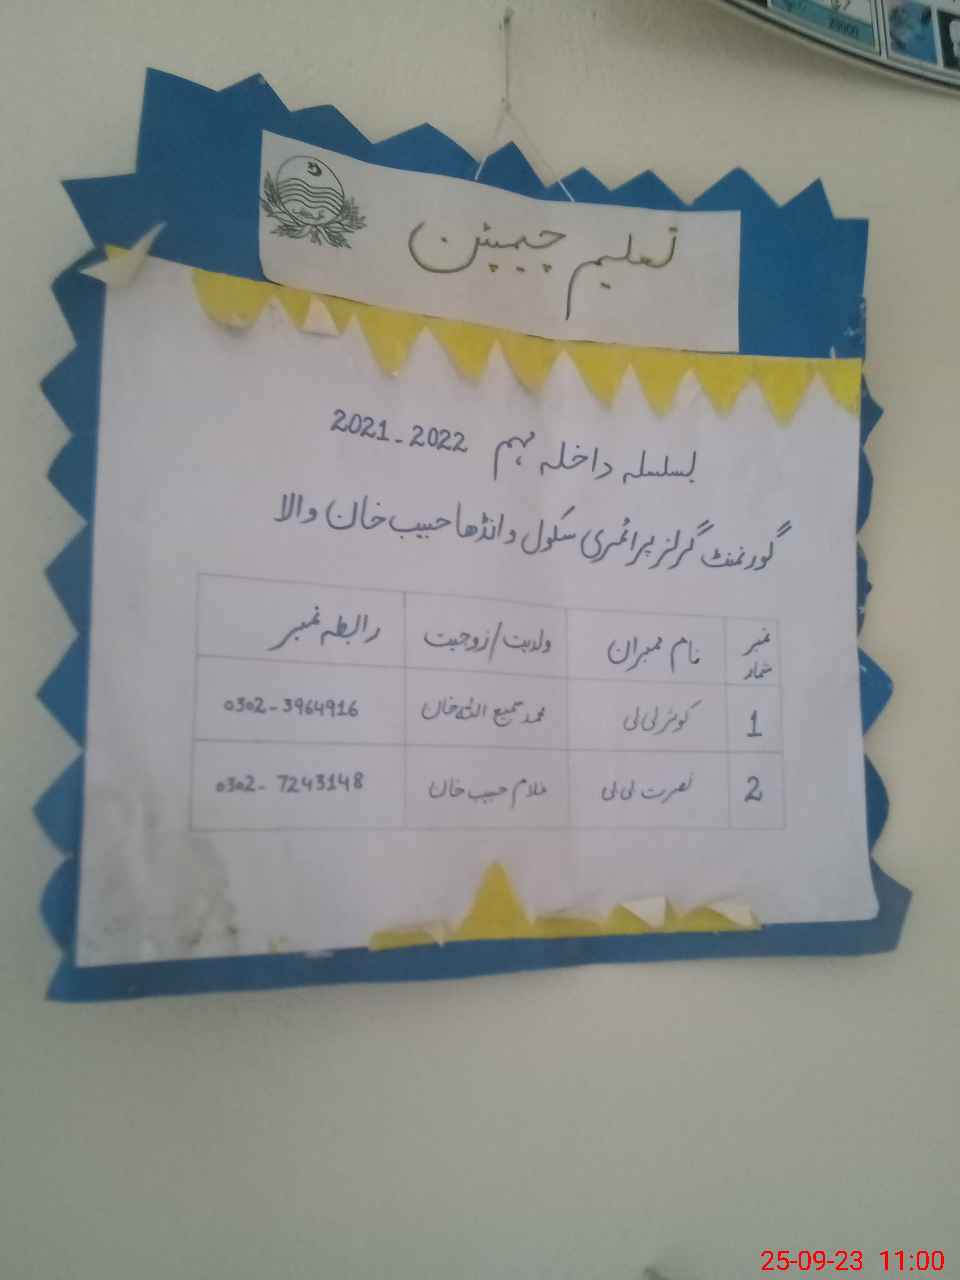 تعلیم چیمپئن
بسلسلہ داخلہ مہم 2021-2022
گورنمنٹ گرلز پرائمری سکول وانڈھا حبیب خان والا
نمبر شمار نام ممبران ولدیت/زوجیت رابطہ نمبر
1 کوثر بی بی محمد سمیع اللہ خان 0302-3964916
2 نصرت بی بی غلام حبیب خان 0302-7243148
25-09-23 11:00